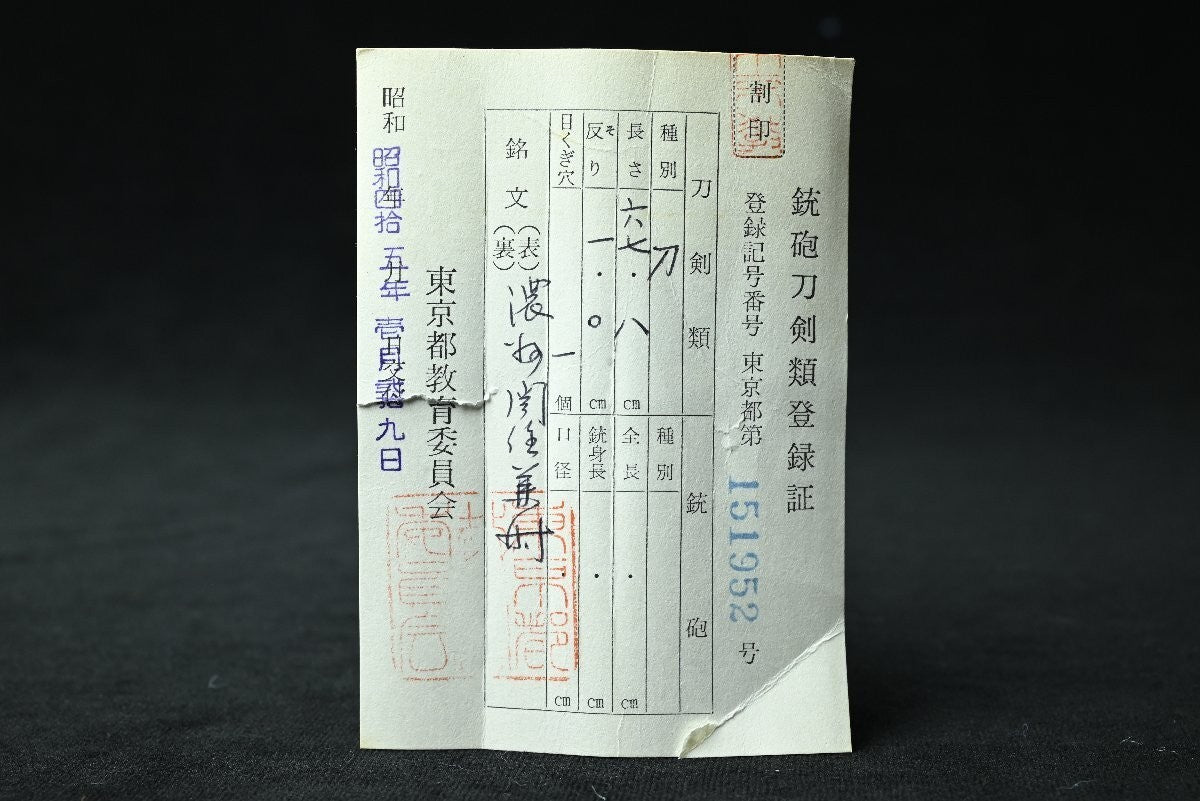 割印
銃砲刀剣類登録証
登録記号番号 東京都第 151952 号
刀剣類 銃砲
種別 刀 種別
長さ 六七・八 cm 全長 ・ cm
反り そ 一・〇 cm 銃身長 ・ cm
目くぎ穴 一 個 口径 ・ cm
銘文 (表) (裏) 濃州関住兼
東京都教育委員会
昭和 年 月 日交付
昭和四拾五年壱月弐拾九日